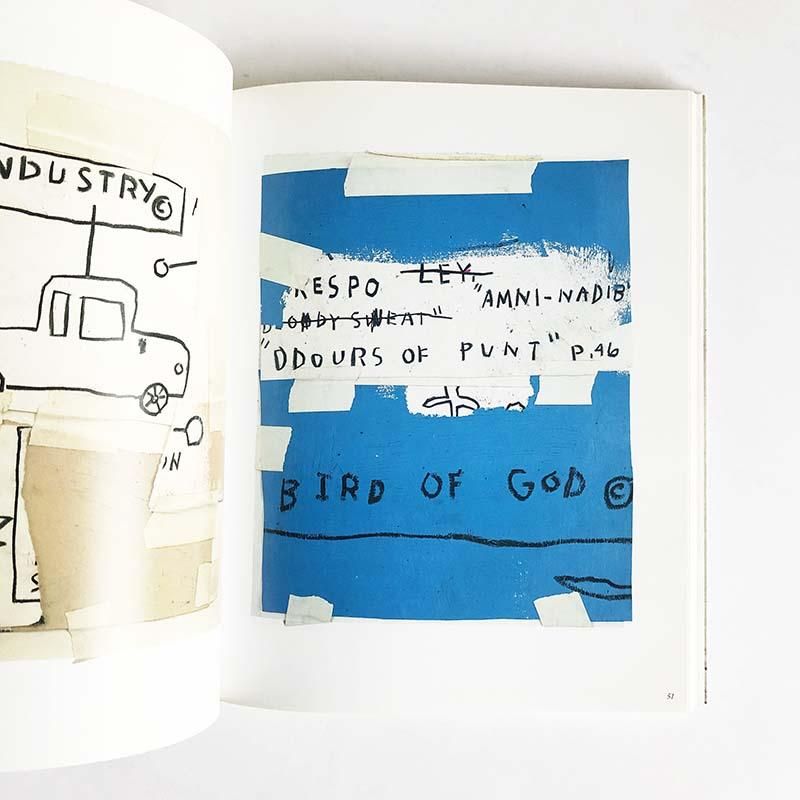 NDUSTRY©
N
S
RESPO LEY, "AMNI-NADIB
ODY SWEAT"
"ODOURS OF PUNT" P.46
BIRD OF GOD ©
51